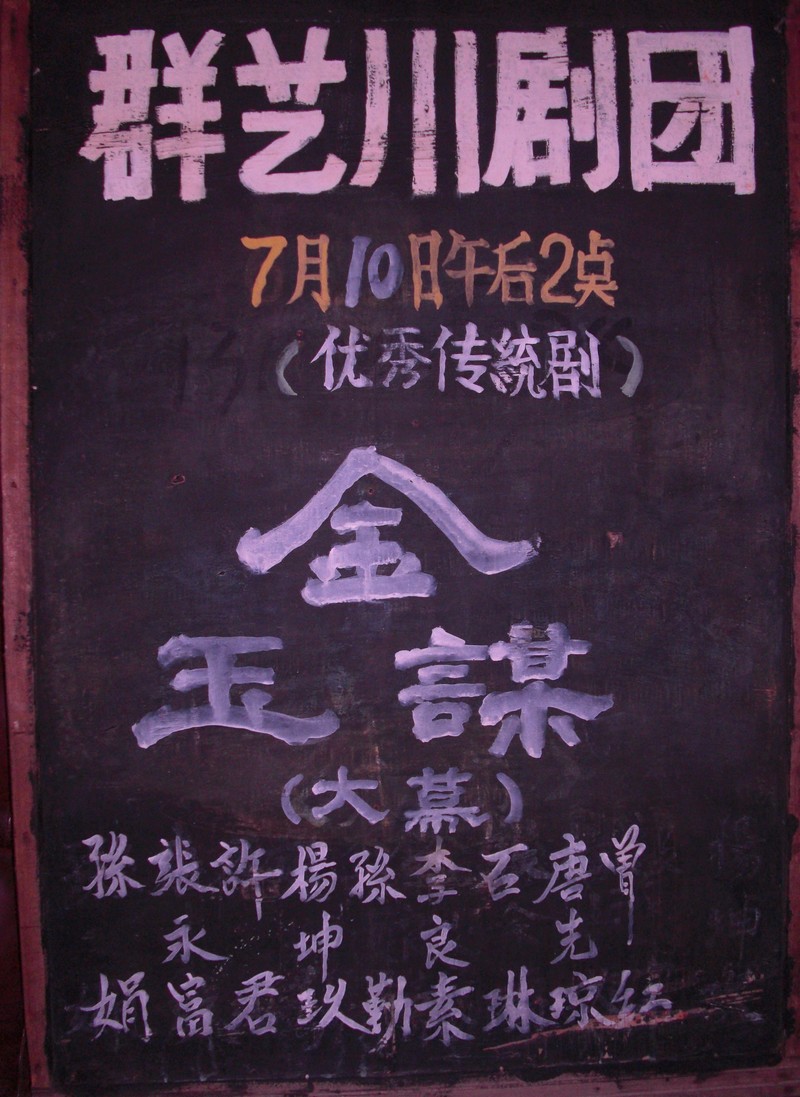 群艺川剧团
7月10日午后2奌
(优秀传統剧)
金
玉謀
(大幕)
孫娟
張永富
許君
楊坤玖
孫勤
李良素
石琳
唐先琼
曾红